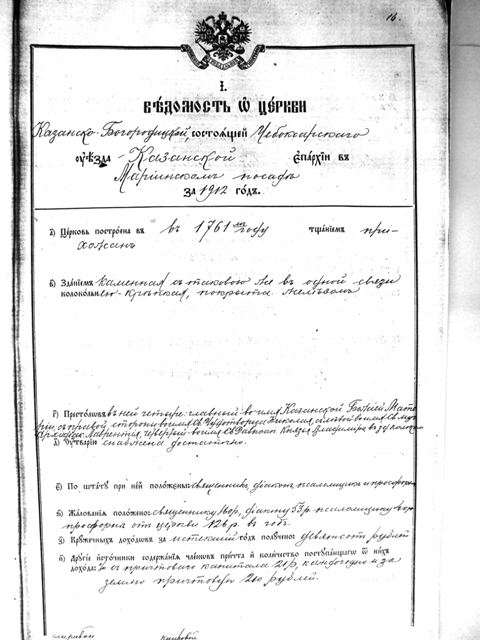 16.
І.
ВѢДОМОСТЬ Ѿ ЦЕРКВИ
Казанско-Богородицкой, состоящей Чебоксарскаго
уѣзда Казанской Епархіи въ
Маріинскомъ посадѣ
за 1912 годъ.
а) Церковь построена въ въ 1761 м году тщаніемъ при-
хожанъ
в) Зданіемъ каменная съ таковою же въ одной связи
колокольнею крѣпкая, покрыта желѣзомъ
г) Престоловъ въ ней четыре: главный во имя Казанской Божіей Мате-
ри, съ правой стороны во имя Св. Чудотворца Николая, съ лѣвой во имя Свящ.
Лаврентія, четвертый во имя Св. Князя Владиміра
д) Утварію снабжена достаточно.
е) По штату при ней положены священникъ, діаконъ, псаломщикъ и просфорня
ж) Жалованья положено: священнику 160 р., діакону 53 р. псаломщику
просфорнѣ отъ церкви 126 р. въ годъ.
з) Кружечныхъ доходовъ за истекшій годъ получено: девятсотъ рублей
и) Другіе источники содержанія членовъ причта и количество поступающаго ѿ нихъ
дохода: съ причтоваго капитала 20 р. каждогодно и за
землю причтовую 200 рублей.